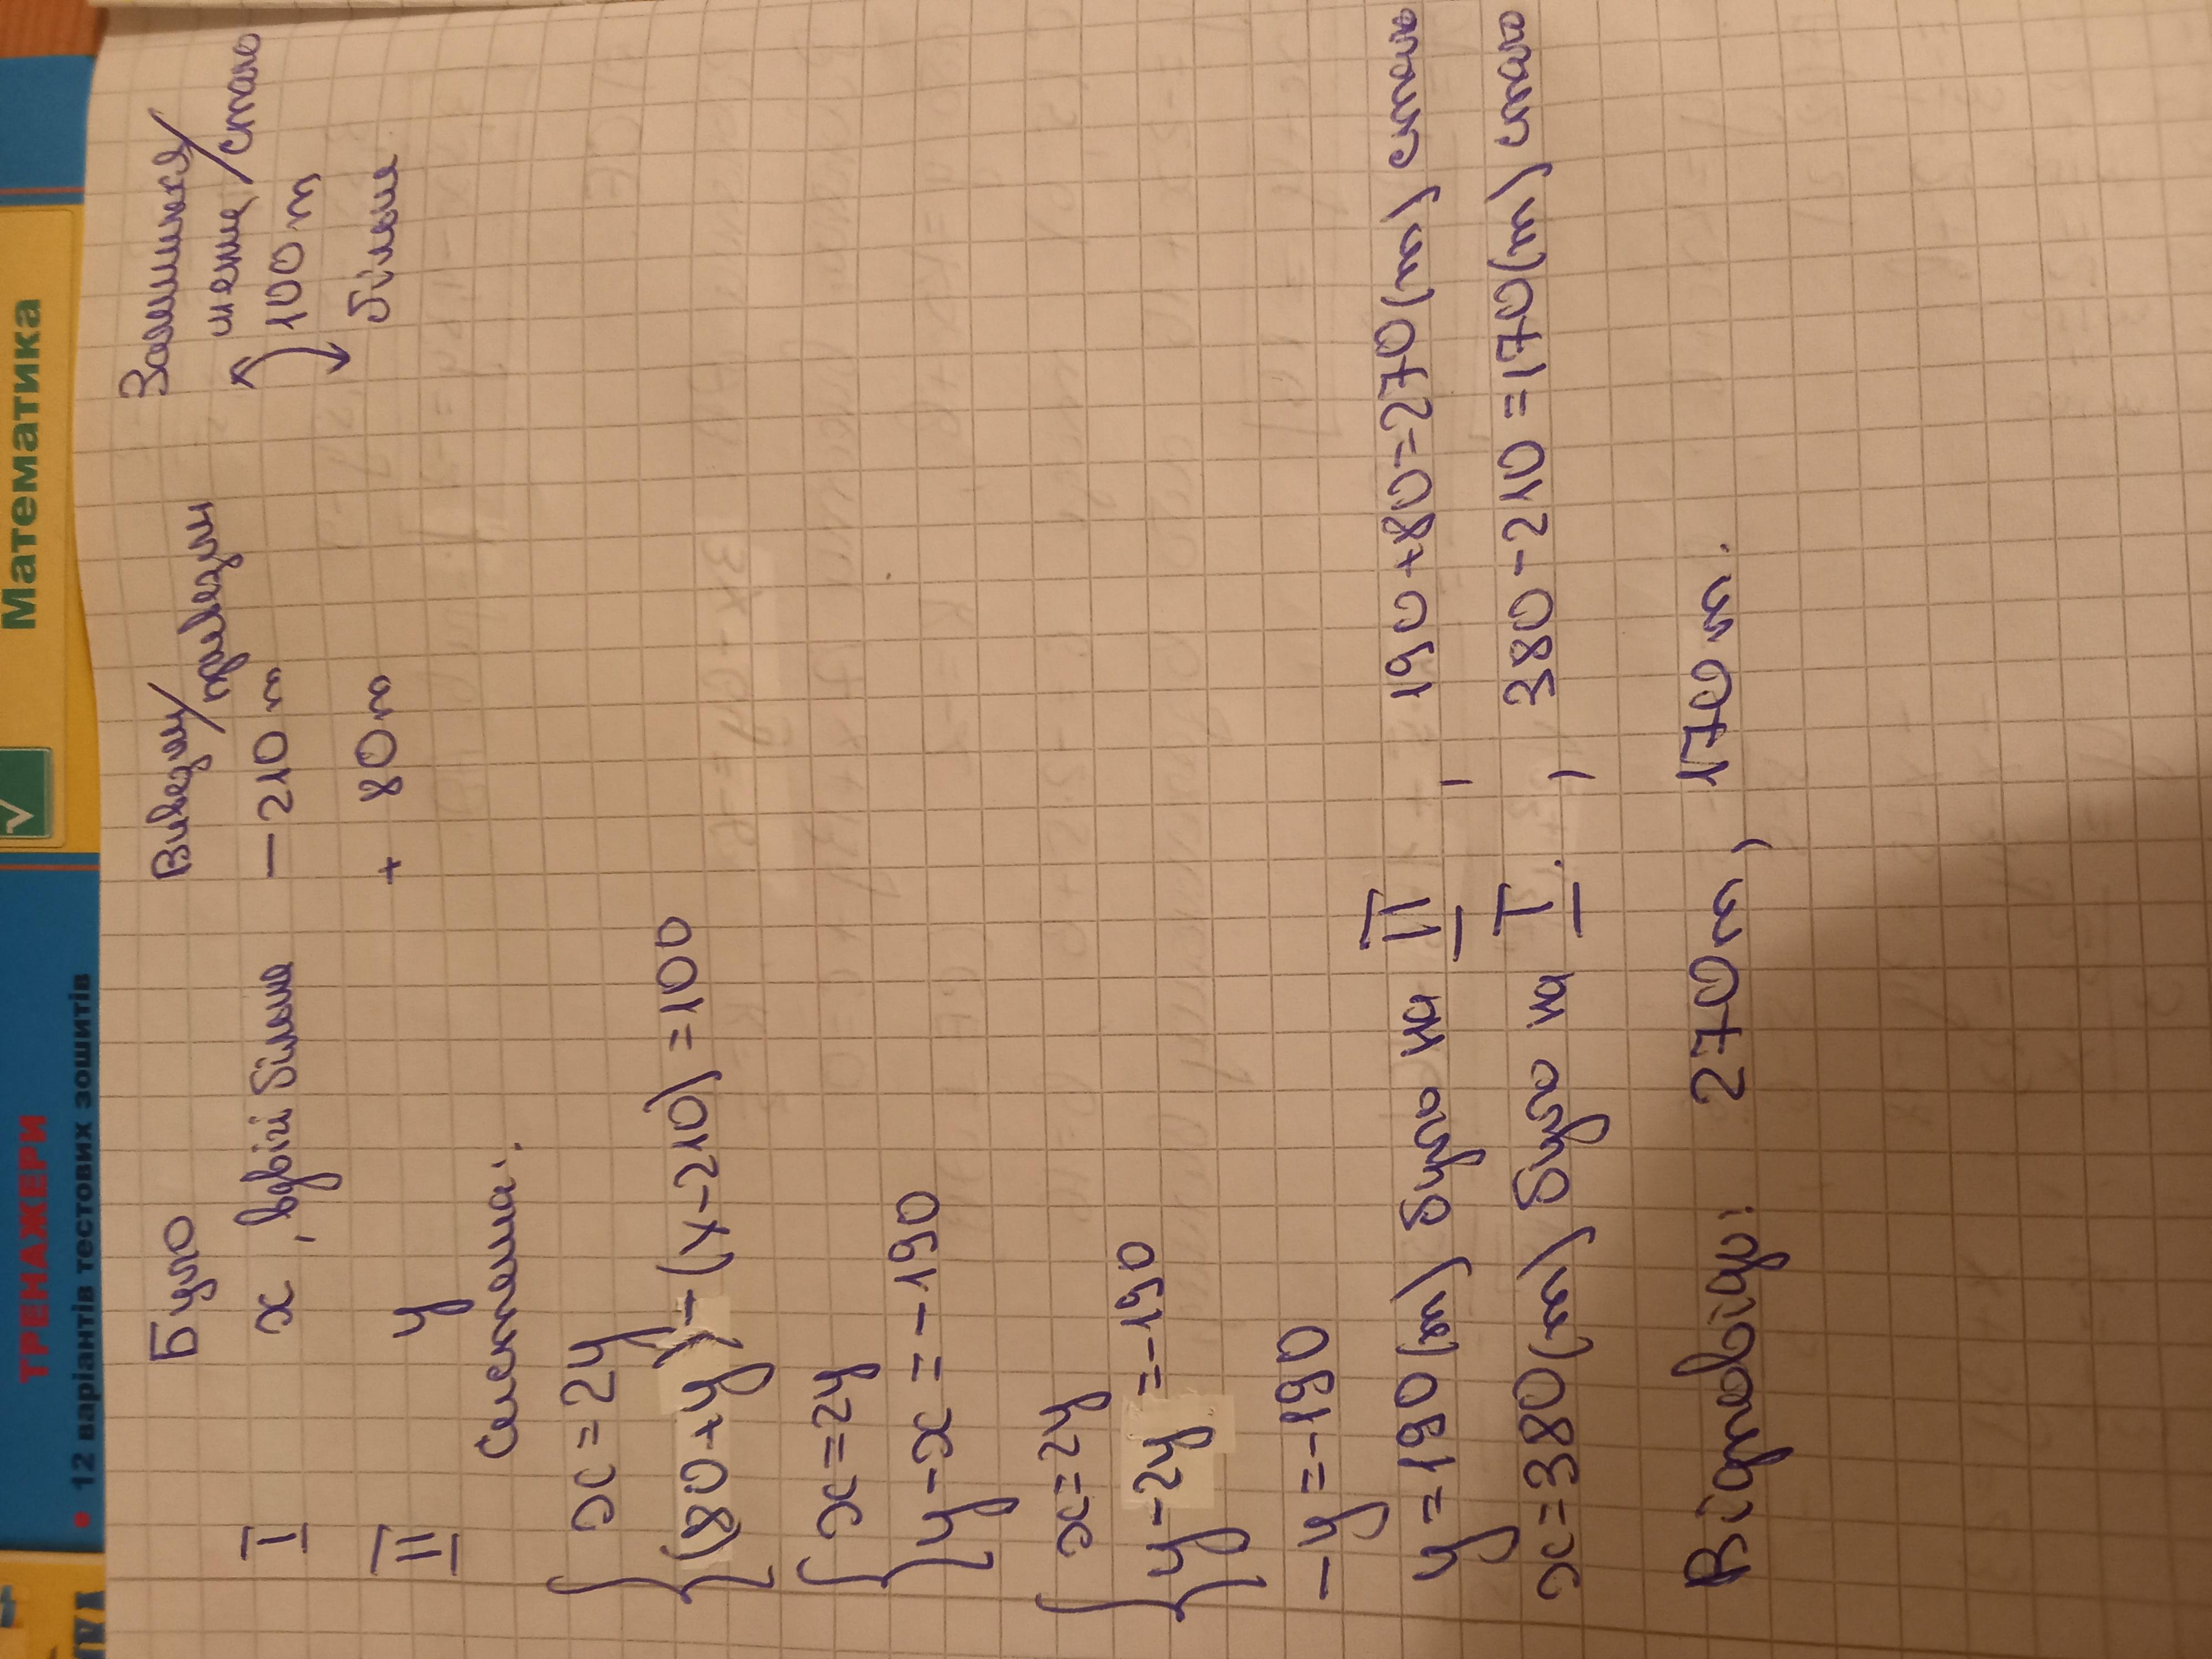 Математика
ТРЕНАЖЕРИ
• 12 варіантів тестових зошитів
Було Вивезли/привезли Залишилося/стало
I x, вдвічі більше —210 т менше
100 т
II y + 80 т більше
Система:
x=2y
(80+y)-(x-210)=100
x=2y
y-x=-190
x=2y
y-2y=-190
-y=-190
y=190(т) було на II, 190+80=270(т) стало
x=380(т) було на I., 380-210=170(т) стало
Відповідь: 270 т, 170 т.